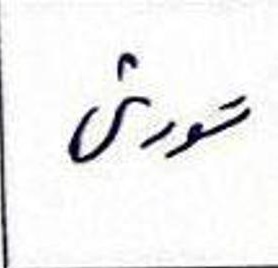 شورش